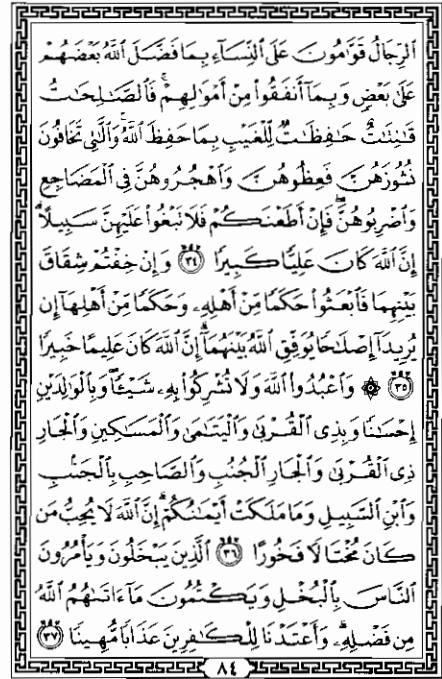 ٱلرِّجَالُ قَوَّٰمُونَ عَلَى ٱلنِّسَآءِ بِمَا فَضَّلَ ٱللَّهُ بَعۡضَهُمۡ
عَلَىٰ بَعۡضٖ وَبِمَآ أَنفَقُواْ مِنۡ أَمۡوَٰلِهِمۡۚ فَٱلصَّٰلِحَٰتُ
قَٰنِتَٰتٌ حَٰفِظَٰتٞ لِّلۡغَيۡبِ بِمَا حَفِظَ ٱللَّهُۚ وَٱلَّٰتِي تَخَافُونَ
نُشُوزَهُنَّ فَعِظُوهُنَّ وَٱهۡجُرُوهُنَّ فِي ٱلۡمَضَاجِعِ
وَٱضۡرِبُوهُنَّۖ فَإِنۡ أَطَعۡنَكُمۡ فَلَا تَبۡغُواْ عَلَيۡهِنَّ سَبِيلًاۗ
إِنَّ ٱللَّهَ كَانَ عَلِيّٗا كَبِيرٗا ٣٤ وَإِنۡ خِفۡتُمۡ شِقَاقَ
بَيۡنِهِمَا فَٱبۡعَثُواْ حَكَمٗا مِّنۡ أَهۡلِهِۦ وَحَكَمٗا مِّنۡ أَهۡلِهَآ إِن
يُرِيدَآ إِصۡلَٰحٗا يُوَفِّقِ ٱللَّهُ بَيۡنَهُمَآۗ إِنَّ ٱللَّهَ كَانَ عَلِيمًا خَبِيرٗا
٣٥ ۞ وَٱعۡبُدُواْ ٱللَّهَ وَلَا تُشۡرِكُواْ بِهِۦ شَيۡـٔٗاۖ وَبِٱلۡوَٰلِدَيۡنِ
إِحۡسَٰنٗا وَبِذِي ٱلۡقُرۡبَىٰ وَٱلۡيَتَٰمَىٰ وَٱلۡمَسَٰكِينِ وَٱلۡجَارِ
ذِي ٱلۡقُرۡبَىٰ وَٱلۡجَارِ ٱلۡجُنُبِ وَٱلصَّاحِبِ بِٱلۡجَنۢبِ
وَٱبۡنِ ٱلسَّبِيلِ وَمَا مَلَكَتۡ أَيۡمَٰنُكُمۡۗ إِنَّ ٱللَّهَ لَا يُحِبُّ مَن
كَانَ مُخۡتَالٗا فَخُورًا ٣٦ ٱلَّذِينَ يَبۡخَلُونَ وَيَأۡمُرُونَ
ٱلنَّاسَ بِٱلۡبُخۡلِ وَيَكۡتُمُونَ مَآ ءَاتَىٰهُمُ ٱللَّهُ
مِن فَضۡلِهِۦۗ وَأَعۡتَدۡنَا لِلۡكَٰفِرِينَ عَذَابٗا مُّهِينٗا ٣٧
٨٤